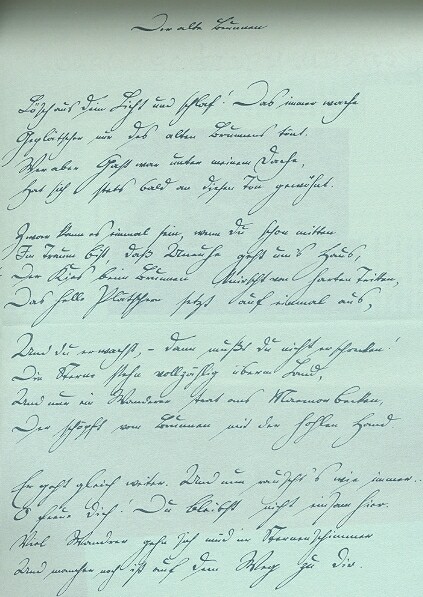 Der alte Brunnen
Lösch aus dein Licht und schlaf! Das immer wache
Geplätscher nur des alten Brunnens tönt.
Wer aber Gast war unter meinem Dache,
Hat sich stets bald an diesen Ton gewöhnt.
Zwar kann es einmal sein, wenn du schon mitten
Im Traume bist, daß Unruhe geht ums Haus,
Der Kies beim Brunnen knirscht von harten Tritten,
Das helle Plätschern setzt auf einmal aus,
Und du erwachst, – dann mußt du nicht erschrecken!
Die Sterne stehn vollzählig überm Land,
Und nur ein Wandrer trat ans Marmorbecken,
Der schöpft vom Brunnen mit der hohlen Hand.
Er geht gleich weiter. Und nun rauscht's wie immer..
O freue dich! Du bleibst nicht einsam hier.
Viel Wandrer gehn ... im Sternenschimmer
Und mancher noch ist auf dem Weg zu dir.